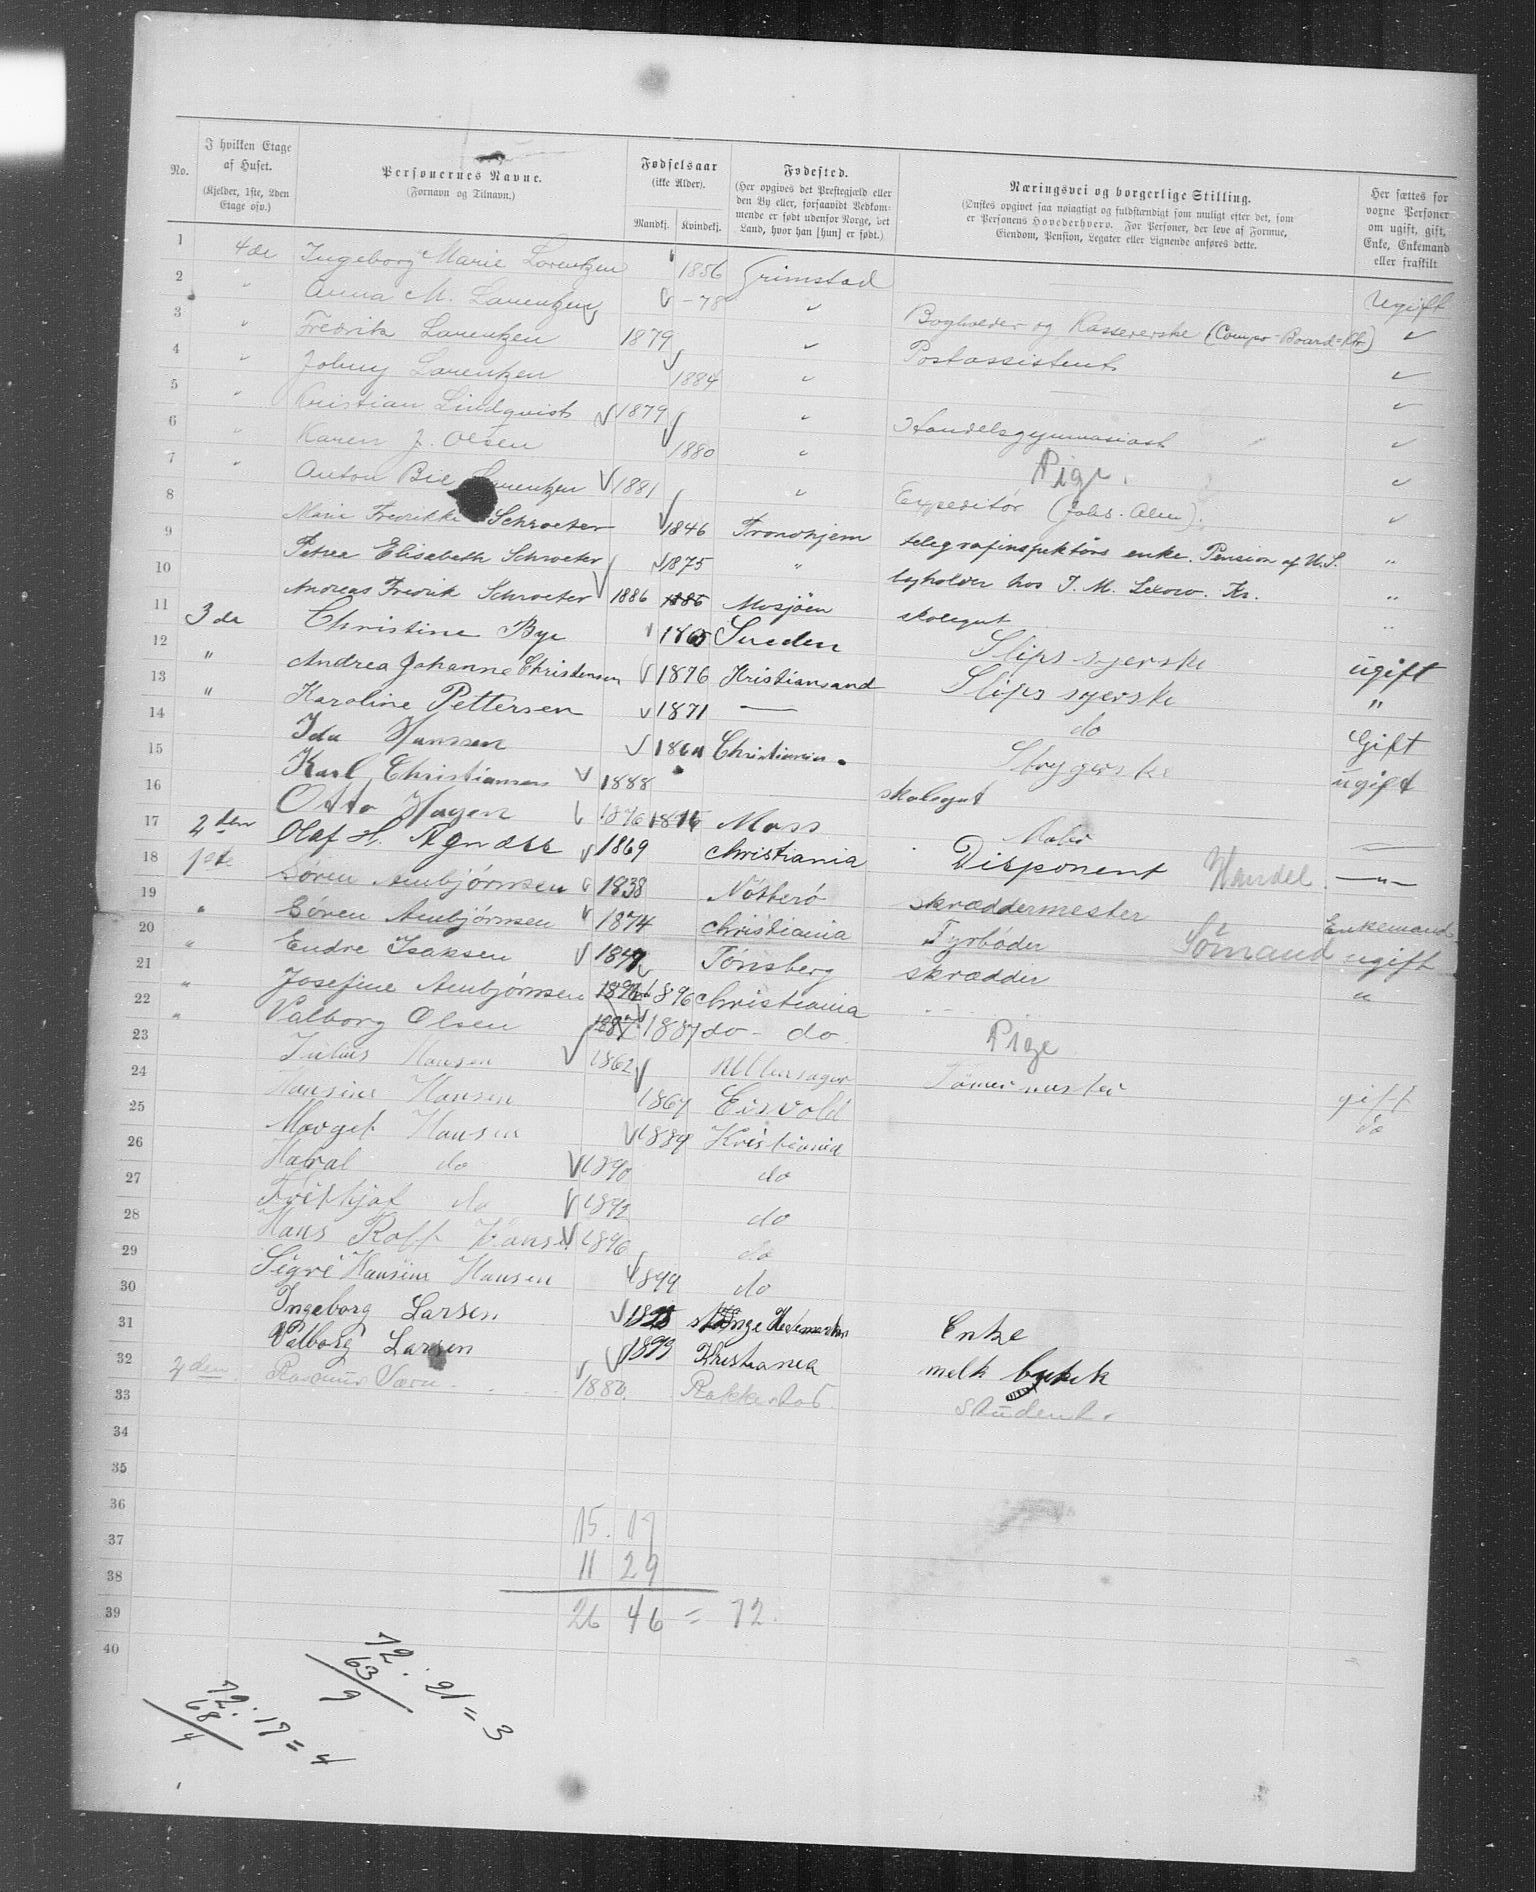 No. | I hvilken Etage af Huset. (Kjelder, 1ste, 2den Etage osv.) | Personernes Navne. (Fornavn og Tilnavn.) | Fødselsaar (ikke Alder). Mandkj. Kvindekj. | Fødested. (Her opgives det Prestegjæld eller den By eller, forsaavidt Vedkommende er født udenfor Norge, det Land, hvor han [hun] er født.) | Næringsvei og borgerlige Stilling. (Ønskes opgivet saa nøiagtigt og fuldstændigt som muligt efter det, som er Personens Hovederhverv. For Personer, der leve af Formue, Eiendom, Pension, Legater eller Lignende anføres dette.) | Her sættes for voxne Personer om ugift, gift, Enke, Enkemand eller fraskilt
1 4de Ingeborg Marie Lorentzen 1856 Grimstad Ugift
2 " Anna M. Lorentzen -78 " Bogholder og Kassererske (Compo-Board-Kbr) "
3 " Fredrik Lorentzen 1879 " Postassistent "
4 " Johny Lorentzen 1884 " "
5 " Kristian Lindqvist 1879 " Handelsgymnasiast "
6 " Karen J. Olsen 1880 " Pige. "
7 " Anton Bie Lorentzen 1881 " Expeditör (Johs. Alm). "
8 Marie Fredrikke Schroeter 1846 Trondhjem telegrafinspektørs enke. Pension af N.S. "
9 Petrea Elisabeth Schroeter 1875 " bgholder hos J. M. Lexow. Kr. "
10 Andreas Fredrik Schroeter 1886 1886 Mosjöen skolegut "
11 3de Christine Bye 1865 Sveden Slips syerske ugift
12 " Andrea Johanne Christensen 1876 Kristiansand Slips syerske "
13 " Karoline Pettersen 1871 — do Gift
14 Ida Hanssen 1861 Christiania Strygerske ugift
15 Karl Christiansen 1888 skolegut
16 Otto Hagen 1876 1876 Moss Maler —
17 2den Olaf H. Agnæss 1869 Christiania Disponent Handel —"—
18 1ste Søren Ambjørnsen 1838 Nøtterø skræddermester Enkemand
19 " Søren Ambjørnsen 1874 christiania Fyrbøder Sömand ugift
20 " Endre Isaksen 1849 Tønsberg skrædder "
21 " Josefine Ambjørnsen 1896 1896 christiania
22 " Valborg Olsen 1887 1887 do - do Pige
23 Julius Hansen 1862 Ullensager Tömermester gift
24 Hansine Hansen 1867 Eisvold do
25 Marget Hansen 1889 Kristiania
26 Haral do 1890 do
27 Fritthjof do 1892 do
28 Hans Rolf Hansen 1896 do
29 Sigri Hansine Hansen 1899 do
30 Ingeborg Larsen Stange Hedemarken Enke
31 Valborg Larsen 1899 Kristiania melk butik
32 2den Rasmus Værn 1880. Rakkestad. Student.
33
34
35
36
37
38
39
40
15. 17
11 29
26 46 = 72.
72. 21 = 3
63
9
72. 17 = 4
68
4